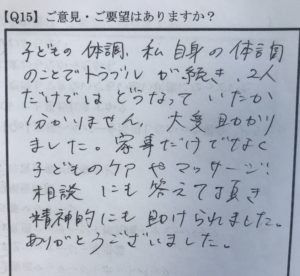 【Q15】ご意見・ご要望はありますか?
子どもの体調、私自身の体調
のことでトラブルが続き、2人
だけではどうなっていたか
分かりません。大変助かり
ました。家事だけでなく
子どものケアやマッサージ!
相談にも答えて頂き
精神的にも助けられました。
ありがとうございました。